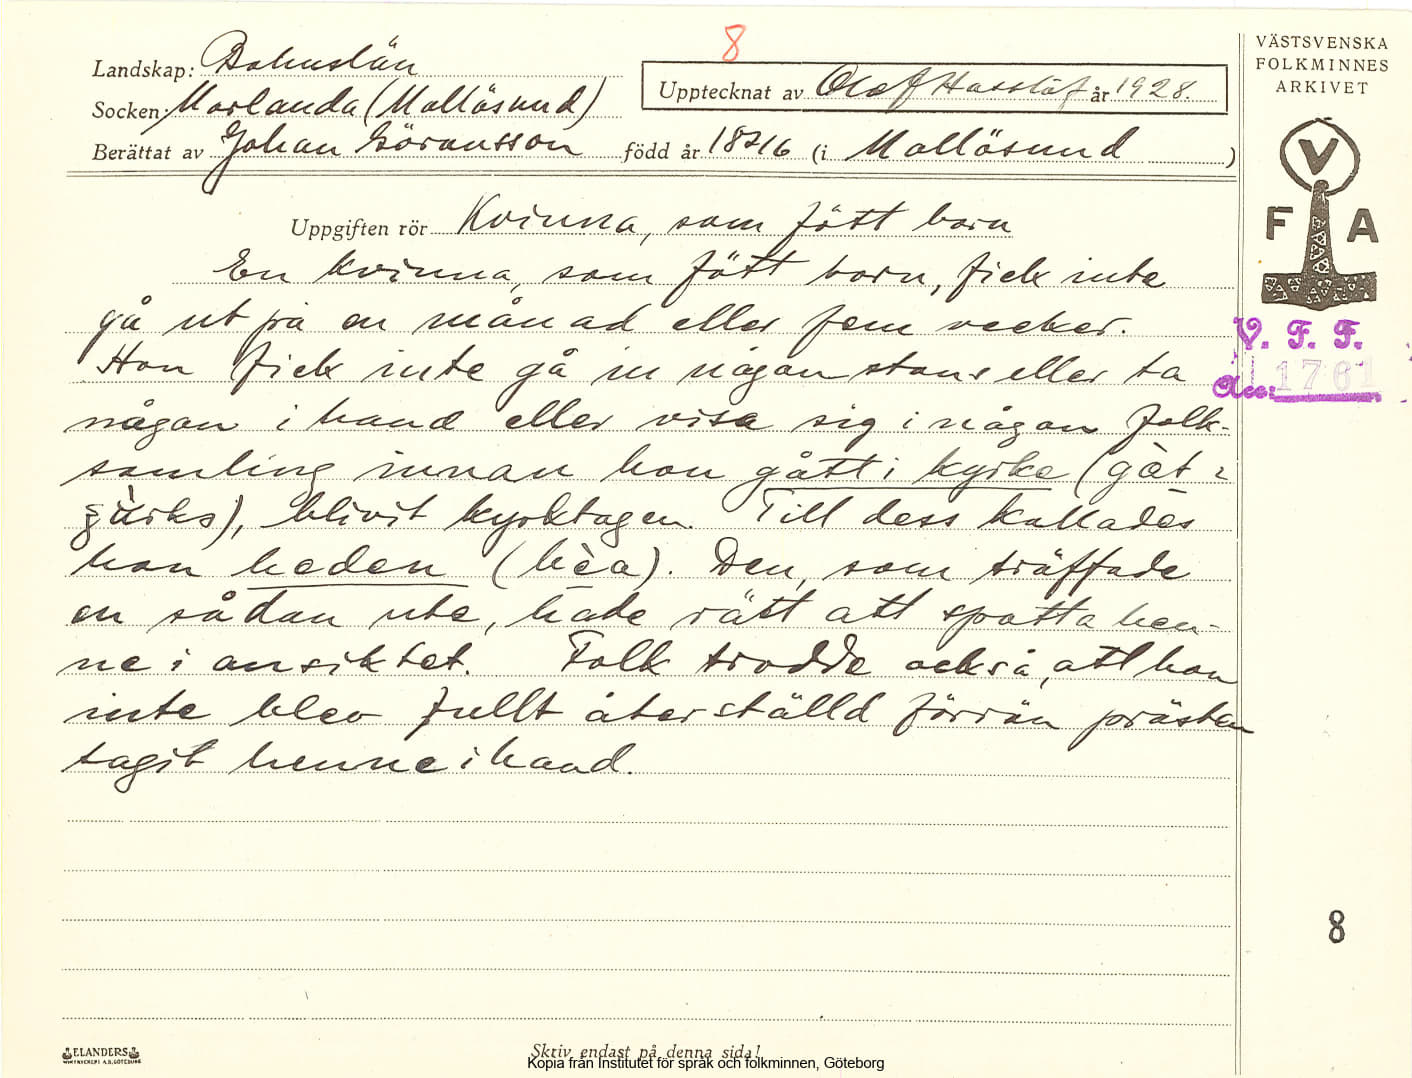 8
Landskap: Bohuslän
Socken: Morlanda (Mollösund)
Upptecknat av Olof Hasslöf år 1928.
Berättat av Johan Göransson född år 1846 (i Mollösund)
VÄSTSVENSKA
FOLKMINNES
ARKIVET
V
F A
V. F. F.
Acc: 1761
Uppgiften rör Kvinna, som fött barn
En kvinna, som fött barn, fick inte
gå ut på en månad eller fem veckor.
Hon fick inte gå in någonstans eller ta
någon i hand eller visa sig i någon folk-
samling innan hon gått i kyrke (gåt
), blivit kyrktagen. Till dess kallades
hon heden (hèa). Den, som träffade
en sådan ute, hade rätt att spotta hen-
ne i ansiktet. Folk trodde också, att hon
inte blev fullt återställd förrän prästen
tagit henne i hand.
8
ELANDERS
Skriv endast på denna sida!
Kopia från Institutet för språk och folkminnen, Göteborg